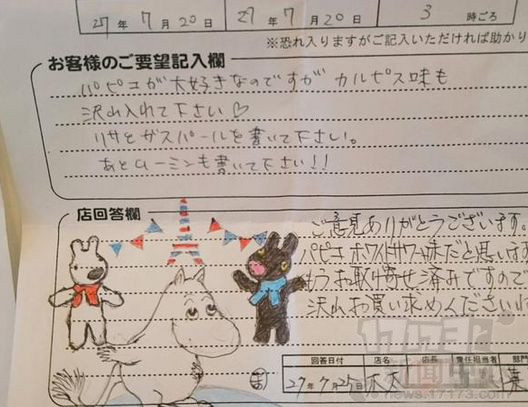 27年 7月 20日 27年 7月 20日 3 時ごろ
※恐れ入りますがご記入いただければ助かり
お客様のご要望記入欄
パピコが大好きなのですが カルピス味も
沢山入れて下さい♡
リサとガスパールを書いて下さい。
あとムーミンも書いて下さい!!
店回答欄
ご意見ありがとうございます。
パピコ ホワイトサワー味だと思います
もうお取り寄せ済みですので
沢山お買い求めください!!
回答日付 店名 店長 責任担当者 部門
27年7月25日
news.17173.com